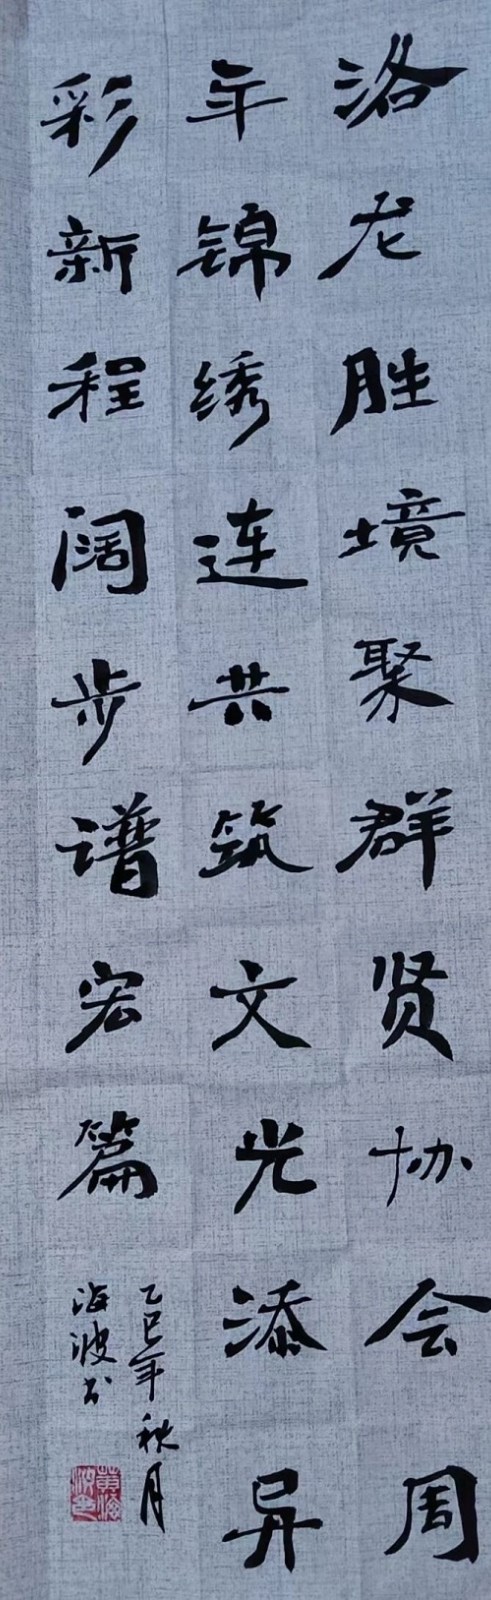 洛龙胜境聚群贤协会周
年锦绣连共筑文光添异
彩新程阔步谱宏篇
乙巳年秋月
海波书
黄海波书